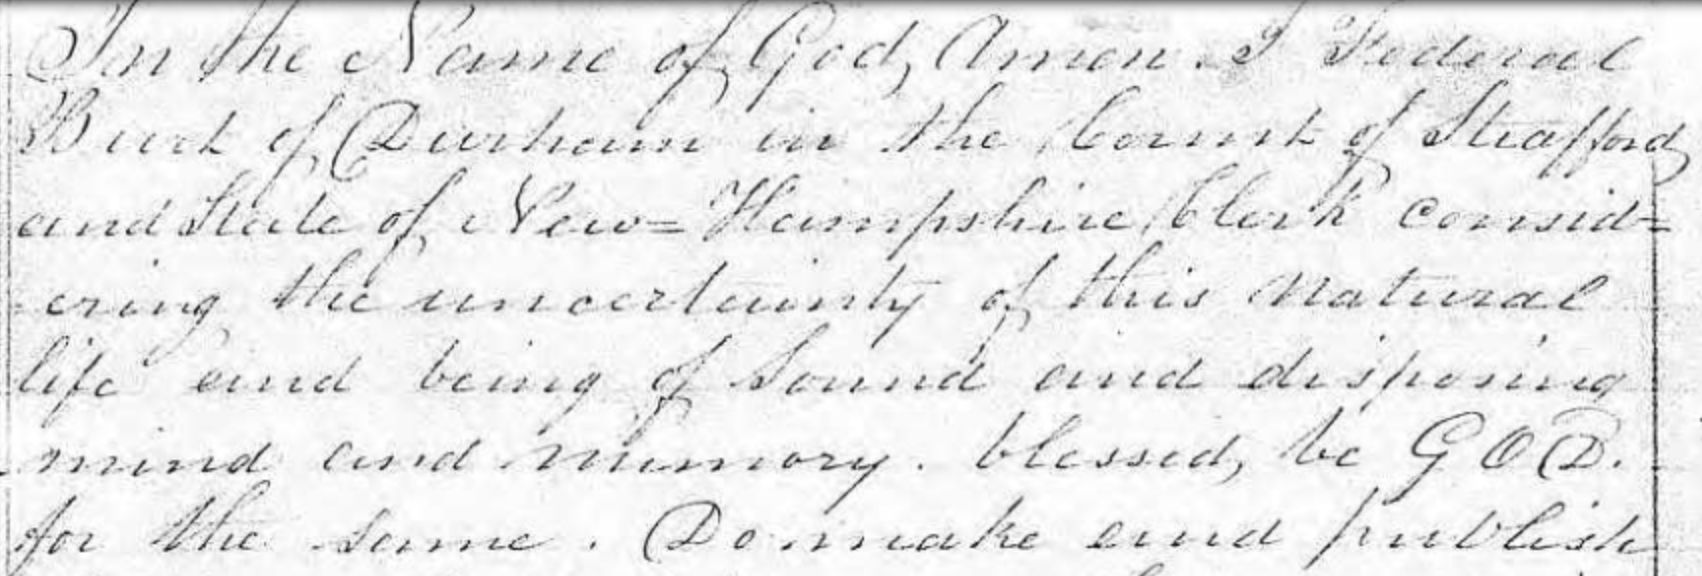 In the Name of God, Amen. I Federal
Burt of Durham in the Count of Strafford
and State of New=Hampshire Clerk consid=
ering the uncertainty of this natural
life and being of sound and disposing
mind and memory. blessed, be GOD.
for the same. Do make and publish